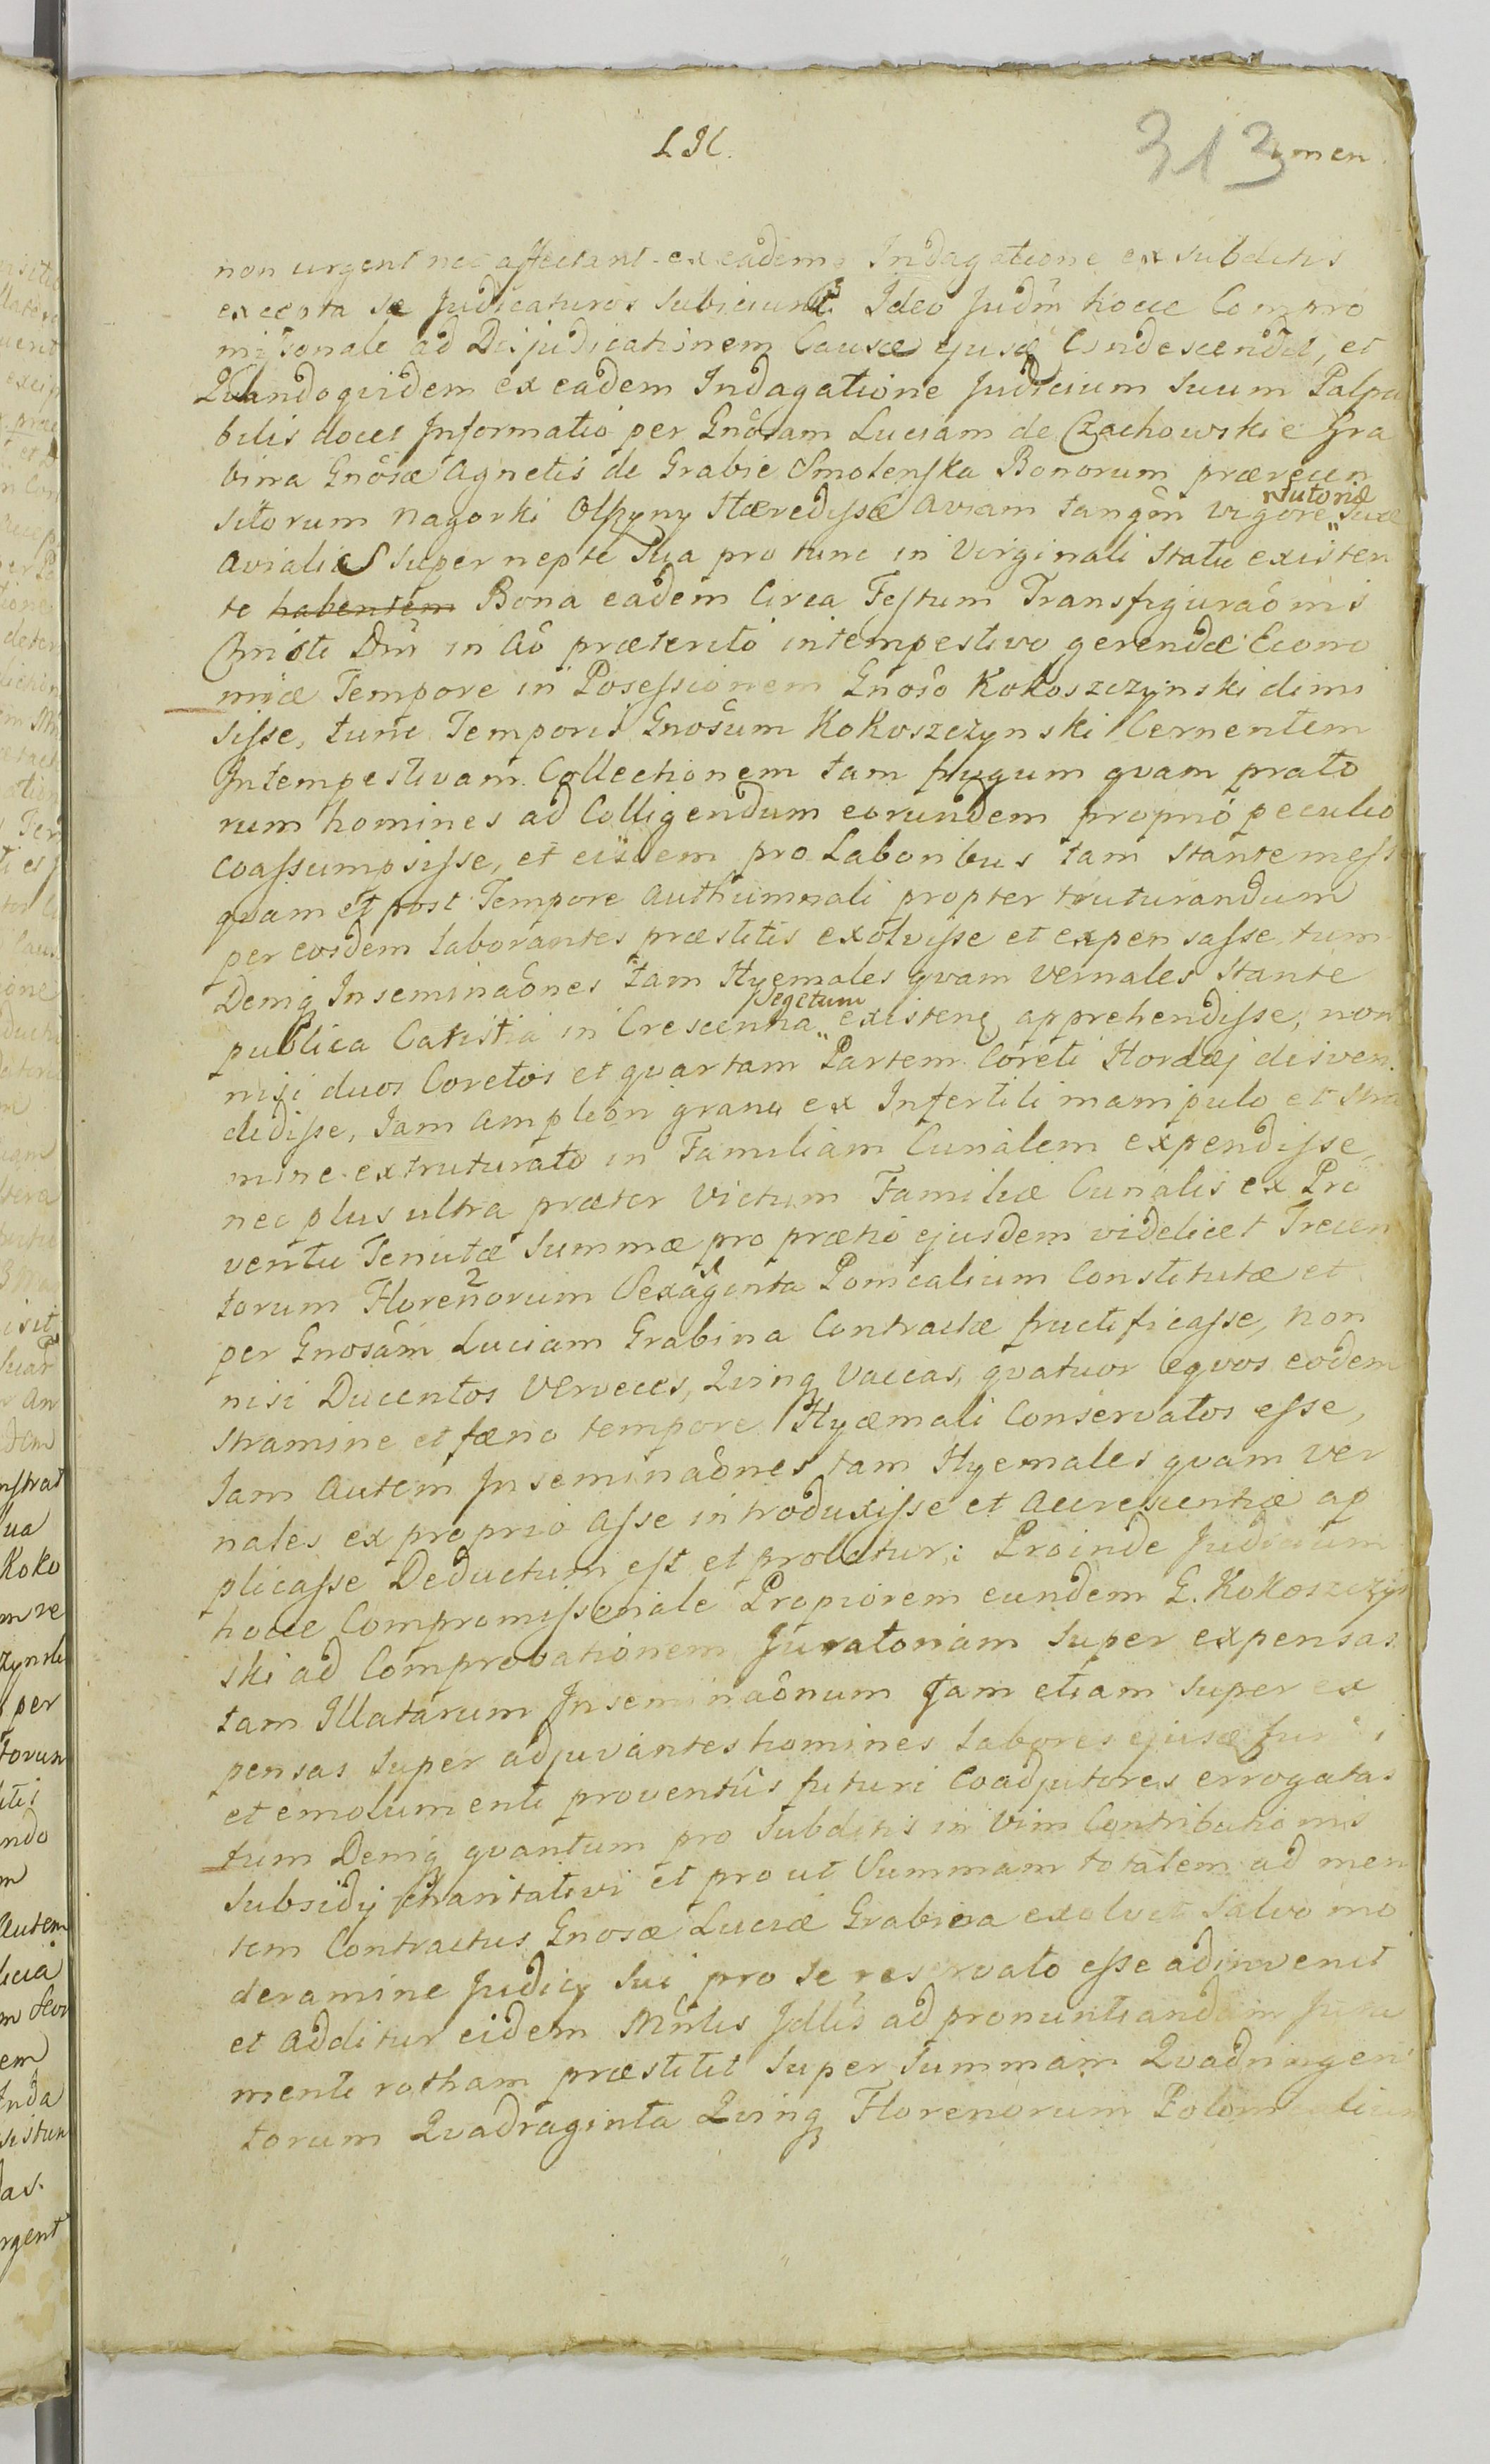 LIC.
313 men
non urgent nec affectant ex eadem Indagatione ex subditis
excepta se Judicaturos subiciunt Ideo Judm hocce Compro
missonale ad Disjudicationem Causæ ejusd Condescendit, et
Qvandoqvidem ex eadem Indagatione Judicium suum Palpa
bilis docet Informatio per Gnosam Luciam de Czachowskie Gra
bina Gnosæ Agnetis de Grabie Smolenska Bonorum præreccen
sitorum Nagorki Olszyny Hæredissæ Aviam tanqm vigore Tutoriæ suæ
Avialis super nepte sua pro tunc in Virginali statu existen
te habentem Bona eadem Circa Festum Transfiguraonis
Christi Dni in Ao præterito intempestivo gerendæ Econo
miæ Tempore in Posessionem Gnoso Kokoszczynski dimi
sisse, tunc Temporis Gnosum Kokoszczynski Cernentem
Intempestivam Collectionem tam frugum qvam prato
rum homines ad Colligendum eorundem proprio peculio
coassumpsisse, et eisdem pro Laboribus tam stante mess
qvam et post Tempore Authumnali propter truturandum
per eosdem laborantes præstitis exolvisse et expensasse, tum
Deniq Inseminaones tam Hyemales qvam vernales stante
publica Caristia in Crescentia segetum existenq apprehendisse, non
nisi duos Coretos et qvartam Partem Coreti Hordej disven
didisse, Iam ampliori grano ex Infertili manipulo et stra
mine extruturato in Familiam Curialem expendisse,
nec plus ultra præter victum Familiæ Curialis ex Pro
ventu Tenutæ summæ pro prætio ejusdem videlicet Trecen
torum Florenorum Sexaginta Ponicalium Constitutæ et
per Gnosam Luciam Grabina Contractæ fructificasse, non
nisi Ducentos Verveces, Qvinq Vaccas, qvatuor eqvos eodem
stramine et fæno tempore Hyæmali Conservatos esse,
Iam Autem Inseminaones tam Hyemales qvam ver
nales ex proprio Asse introduxisse et Accrescentiæ ap
plicasse Deductum est et probatur: Proinde Judicium
hocce Compromissoriale Propiorem eundem G. Kokoszczyn
ski ad Comprobationem Juratoriam super expensas
tam Illatarum Inseminaonum Jam etiam super ex
pensas super adjuvantes homines labores ejusd
et emolumenti proventus futuri Coadjutores errogatas
tum Deniq qvantum pro subditis in Vim Contributionis
subsidij Charitativi et pro ut Summam totalem ad men
tem Contractus Gnosæ Luciæ Grabina exolvit salvo mo
deramine Judicij sui pro se reservato esse adinvenit
et additur eidem Mnlis Idlis ad pronuntiandam Jura
menti rotham præstitit super summam Qvadringen
torum Qvadraginta Qvinq Florenorum Polonicalium